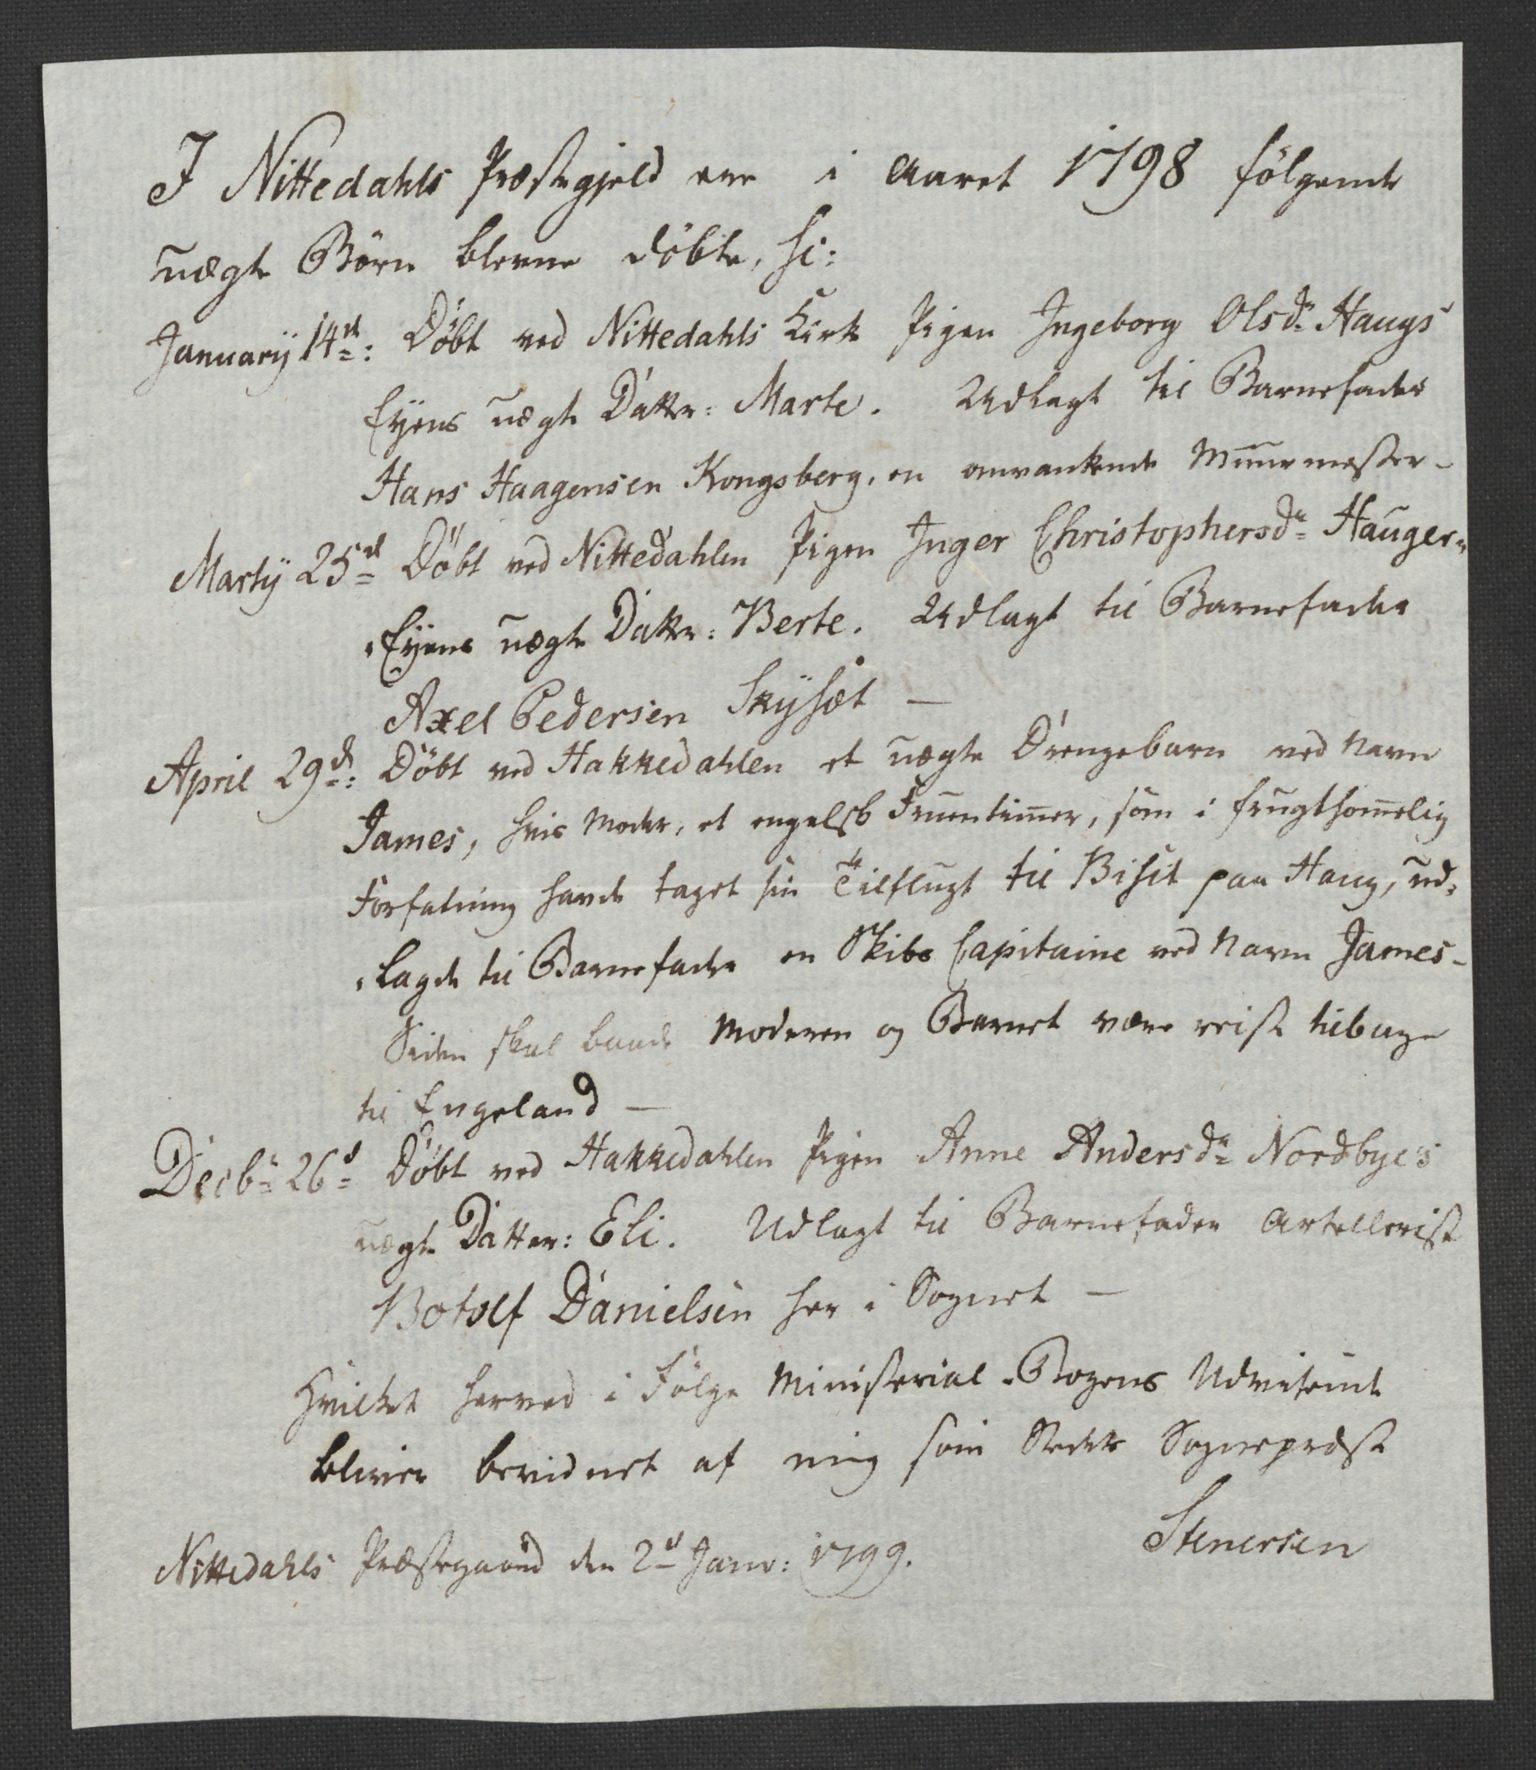 I Nittedahls Præstegjeld ere i Aaret 1798 følgende
uægte Børn blevne døbte, sc:
Januarÿ 14de: Døbt ved Nittedahls Kirke Pigen Ingeborg Olsdr Haugs
Eÿens uægte Datter: Marte. Udlagt til Barnefader
Hans Haagensen Kongsberg, en omvankende Muurmester-
Martÿ 25de Døbt ved Nittedahlen Pigen Inger Christophersdr Hauger-
-Eÿens uægte Datter: Berte. Udlagt til Barnefader
Axel Pedersen Skÿset —
April 29de: Døbt ved Hakkedahlen et uægte Drengebarn ved Navn
James, hvis Moder, et engelsk Fruentimer, som i frugtsomelig
Forfatning havde taget sin Tilflugt til Bisit paa Haug, ud-
-lagde til Barnefader en Skibs Capitaine ved Navn James-
Siden skal baade Moderen og Barnet være reist tilbage
til Engeland —
Decbr 26de Døbt ved Hakkedahlen Pigen Anne Andersdr Nordbye's
uægte Datter: Eli. Udlagt til Barnefader Artellerist
Botolf Danielsen her i Sognet —
Hvilket herved i Følge Ministerial-Bogens Udvisende
bliver bevidnet af mig som Stedets Sognepræst
Stenersen
Nittedahls Præstegaard den 2de Janv: 1799.